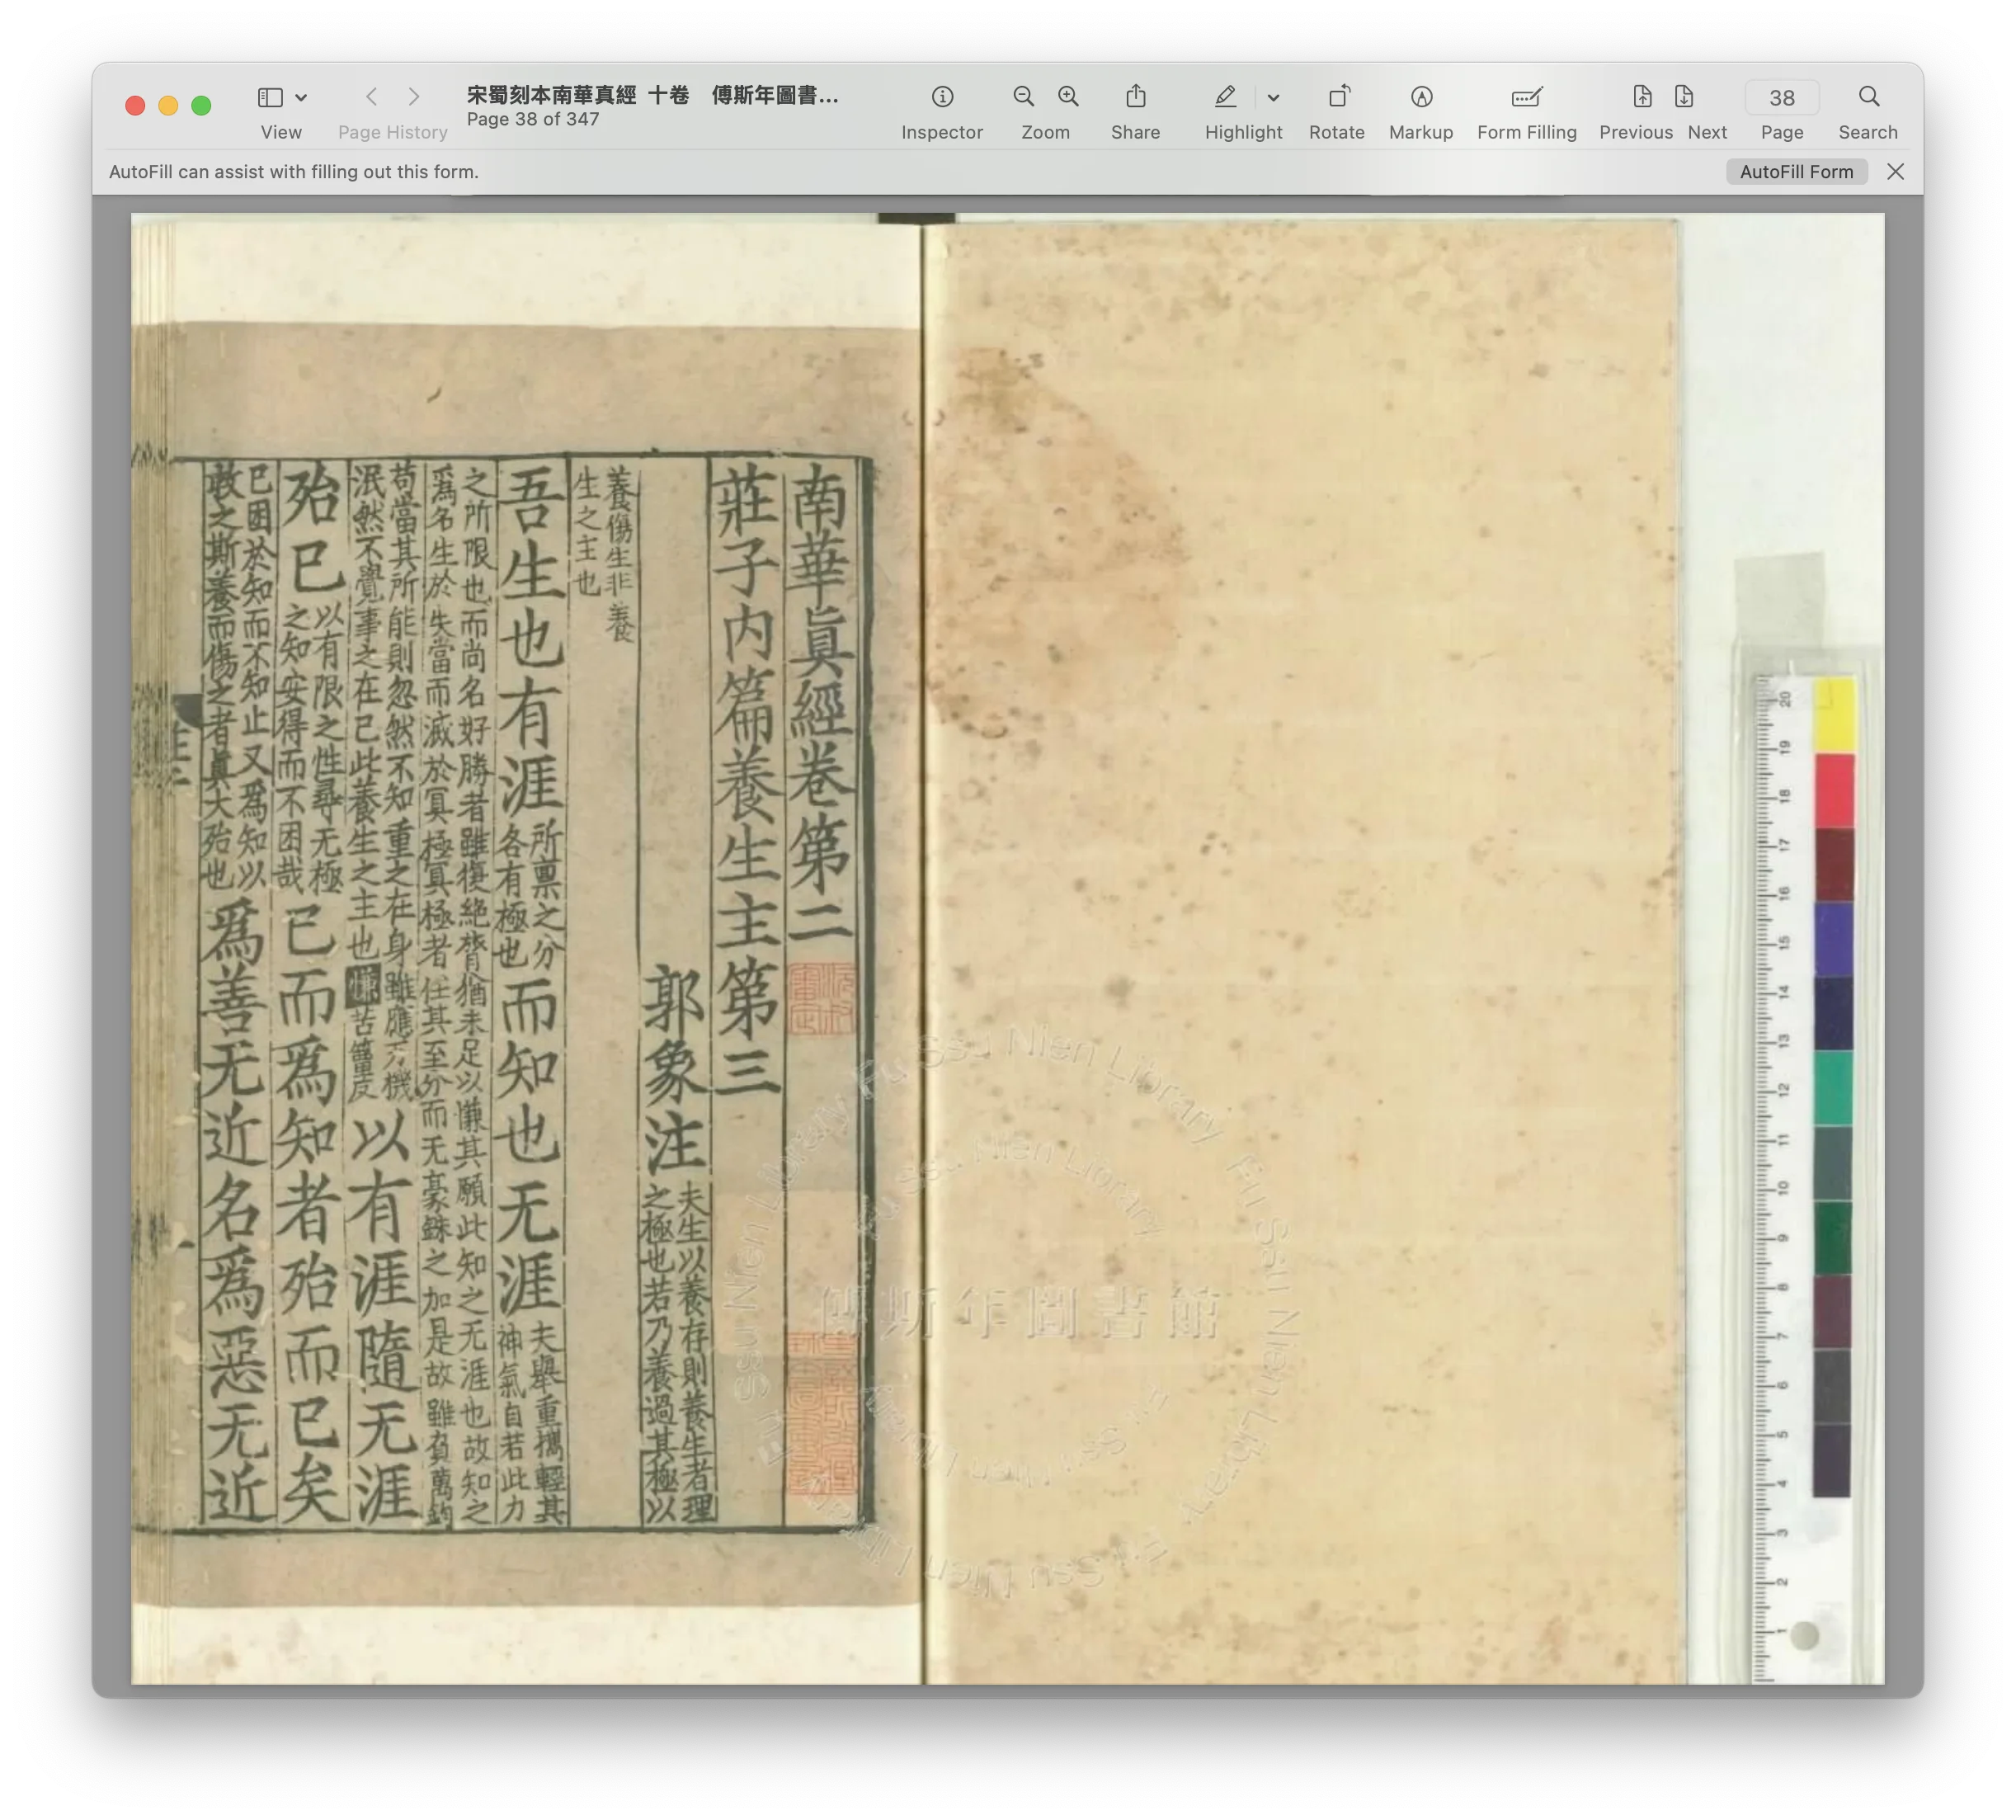 宋蜀刻本南華真經 十卷　傅斯年圖書…
Page 38 of 347
View
Page History
Inspector
Zoom
Share
Highlight
Rotate
Markup
Form Filling
Previous
Next
38
Page
Search
AutoFill can assist with filling out this form.
AutoFill Form
南華眞經卷第二
莊子内篇養生主第三
郭象注 夫生以養存則養生者理
之極也若乃養過其極以
養傷生非養
生之主也
吾生也有涯 所禀之分
各有極也 而知也无涯 夫舉重擕輕其
神氣自若此力
之所限也而尚名好勝者雖復絶膂猶未足以慊其願此知之无涯也故知之
爲名生於失當而滅於冥極冥極者任其至分而无豪銖之加是故雖負萬鈞
苟當其所能則忽然不知重之在身雖應万機
泯然不覺事之在己此養生之主也 慊苦簟反 以有涯隨无涯
殆已 以有限之性尋无極
之知安得而不困哉 已而爲知者殆而已矣
已困於知而不知止又爲知以
救之斯養而傷之者眞大殆也 爲善无近名爲惡无近
傅斯年圖書館
Fu Ssu Nien Library
Fu Ssu Nien Library
Fu Ssu Nien Library
Fu Ssu Nien Library
20
19
18
17
16
15
14
13
12
11
10
9
8
7
6
5
4
3
2
1